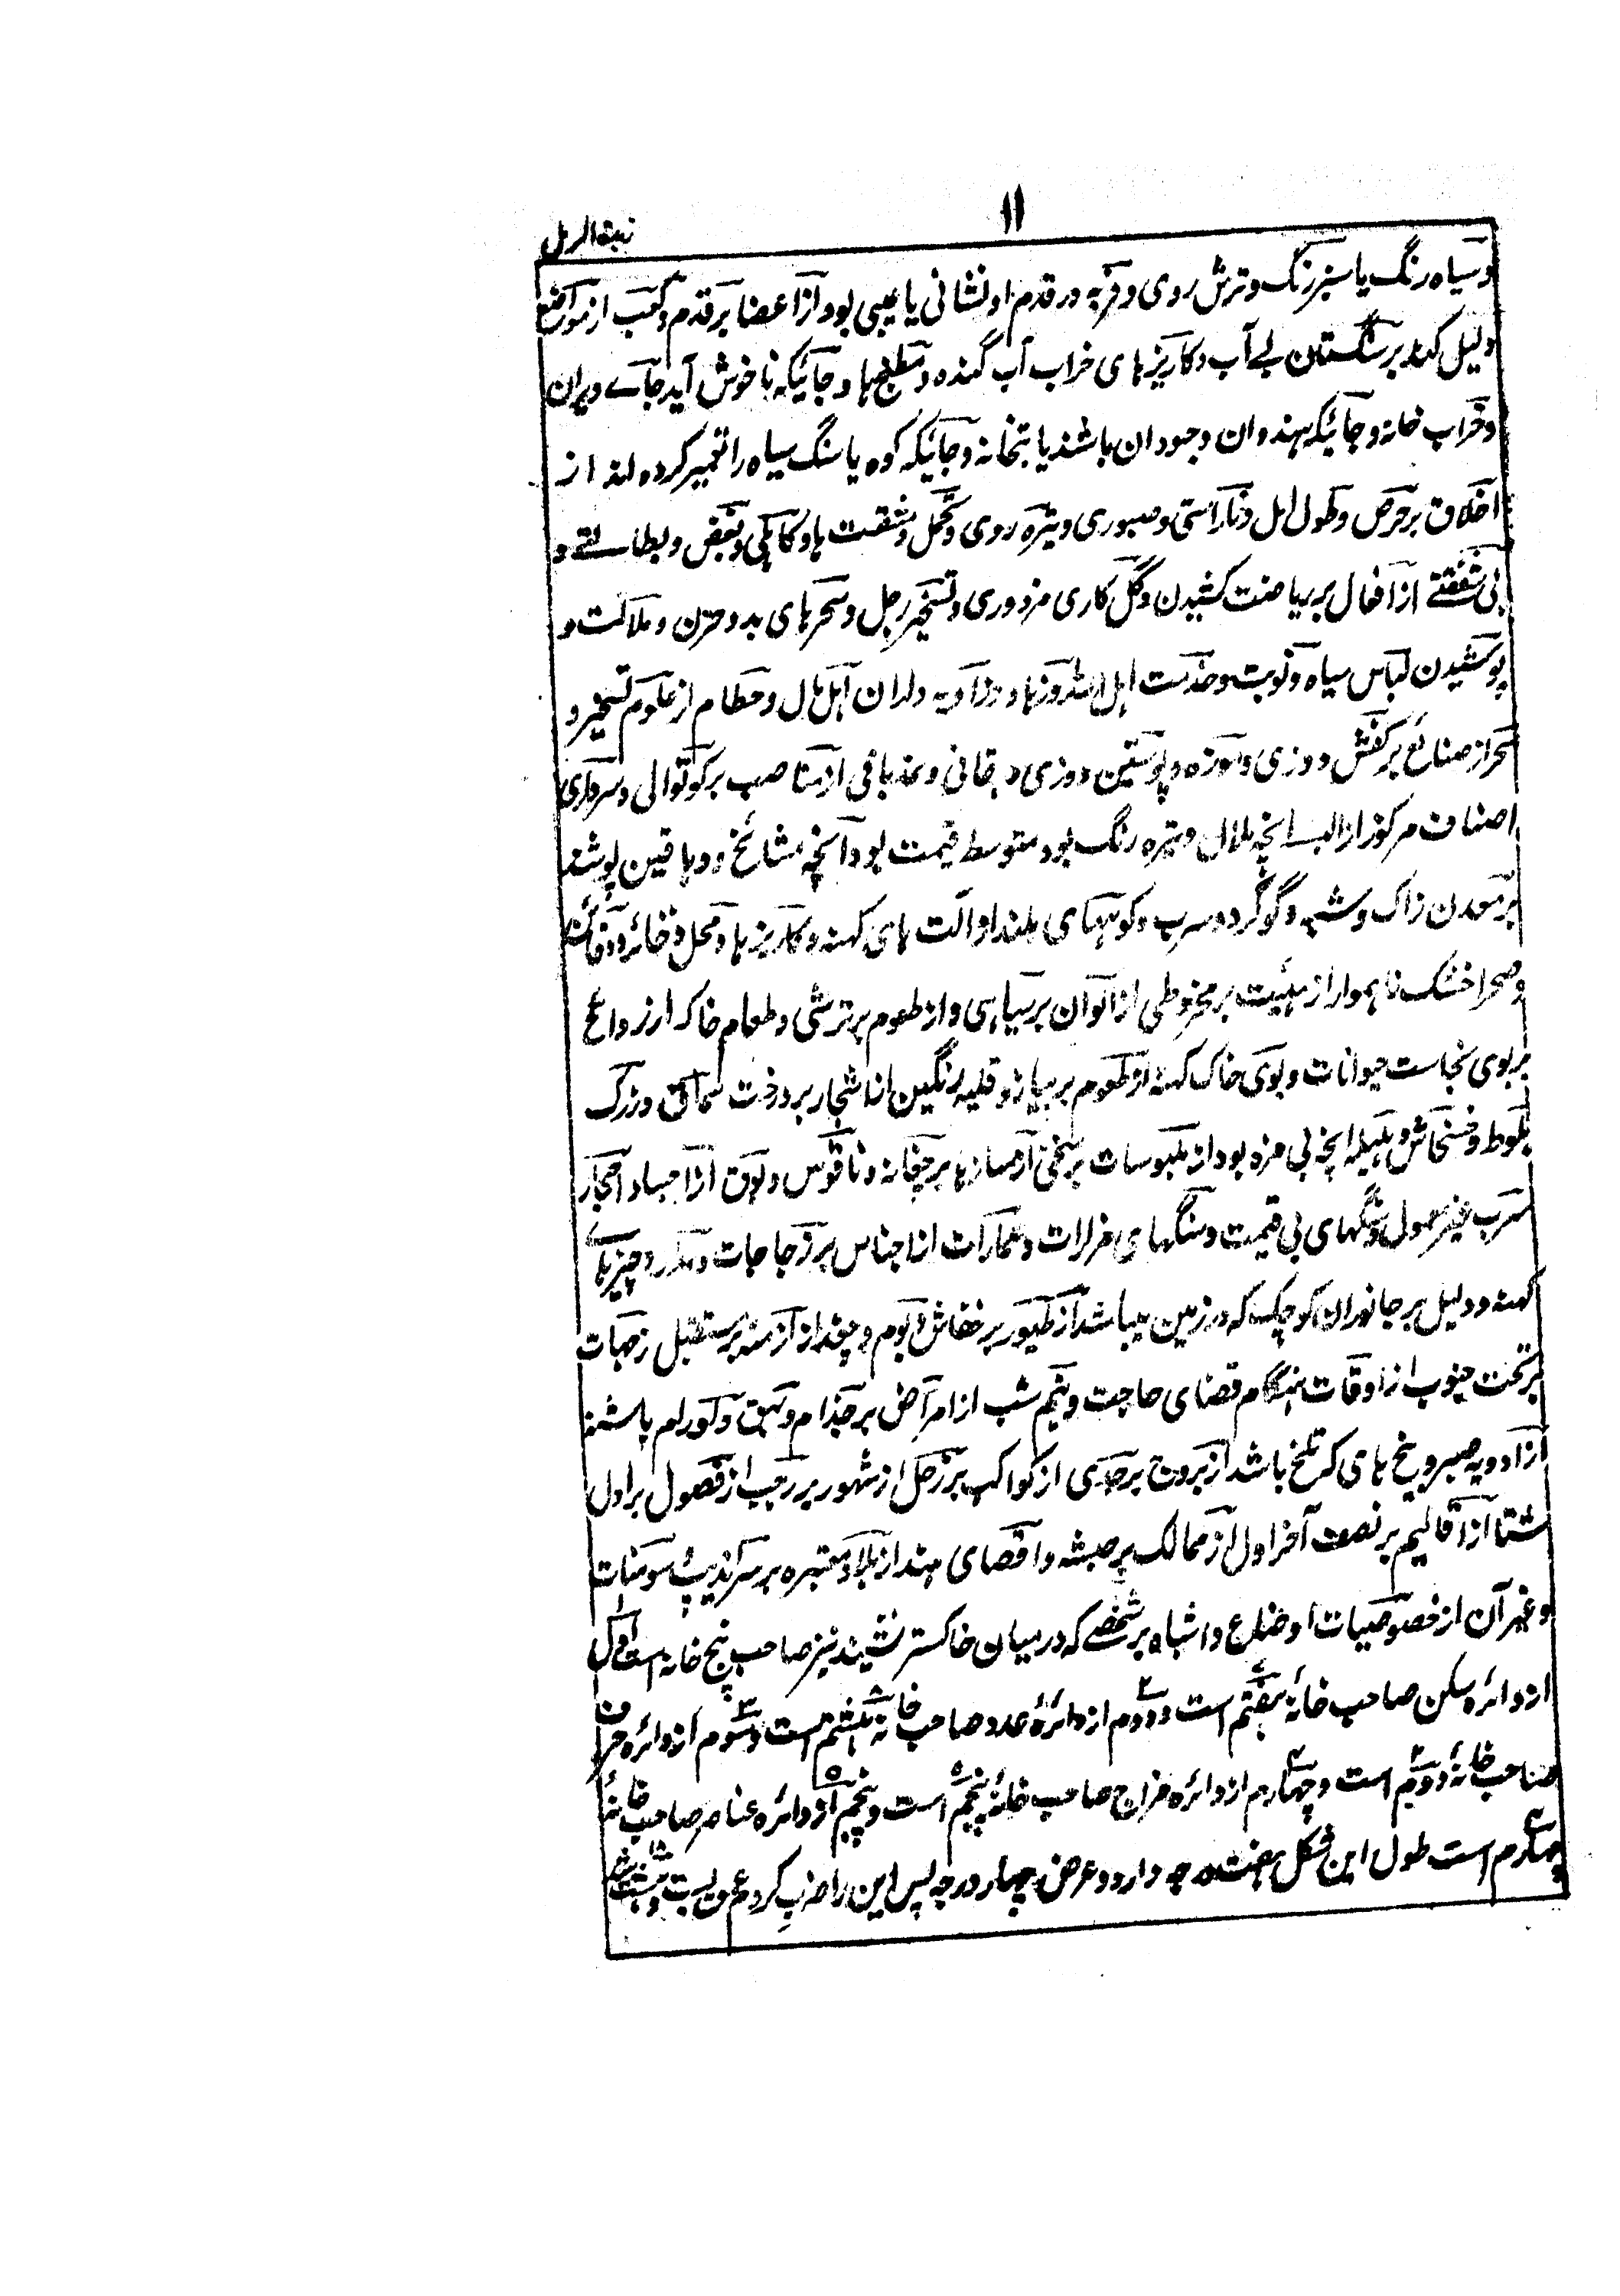 ۱۱
زبدة الرمل
و سیاه رنگ یا سبز رنگ و ترش روی و فربه در قدم او نشانی یا عیبی بود از اعضا بر قدم و کعب از مواضع
دلیل کند بر سنگستان بے آب و کاریزهای خراب آب گنده و مطبخ ها و جائیکه ناخوش آید جاے ویران
و خراب خانه و جائیکه هندوان و جهودان باشند یا بتخانه و جائیکه کوه یا سنگ سیاه را تعمیر کرده اند از
اخلاق بر حرص و طول امل و ناراستی و صبوری و تیره روی و تحمل و مشقت ها و کاهلی و بغض و بطالتے و
بی شفقتے از افعال بر ریاضت کشیدن و گل کاری مزدوری و تسخیر رجل و سحرهای بد و حزن و ملالت و
پوشیدن لباس سیاه و نوبت و خدمت اهل و حطام از علوم تسخیر و
سحر از صنائع بر کفش دوزی و موزه و پوستین دوزی دهقانی و نمد بافی از مناصب بر کوتوالی و سرداری
اصناف مرکوز از البسه انچه ملال و تیره رنگ بود متوسط قیمت بود آنچه مشائخ و دهاقین پوشند
بر معدن زاک و شبه و گوگرد و سرب و کوههای بلند او آلت های کهنه و کاریزها و محل ذخائر و دفائن
و صحرا خشک ناهموار از هیئیت بر مخروطی از الوان بر سیاهی و از طعوم بر ترشی و طعام خاکه از روائح
بر بوی نجاست حیوانات و بوی خاک کهنه از طعوم بر پیاز و قلیه رنگین از اشجار بر درخت سماق و زرک
بلوط و خشخاش و هلیله انچه بی مزه بود از ملبوسات بر سختی از سازها بر چغانه و ناقوس و بوق از اجساد احجار
سرب غیر معمول و سنگهای بی قیمت و سنگهای مزارات و عمارات از اجناس بر زجاجات و چیزهاے
کهنه و دلیل بر جانوران کوچک که در زمین میباشد از طیور بر خفاش و بوم و چغد از ازمنه بر مستقبل از جهات
بر تحت جنوب از اوقات هنگام قضای حاجت و نیم شب از امراض بر جذام و بهق و کورام پاشنه
از ادویه صبر و بیخ های که تلخ باشد از بروج بر جدی از کواکب بر زحل از شهور بر رجب از فصول بر اول
شتا از اقالیم بر نصف آخر اول از ممالک بر حبشه و اقصای هند از بلاد معتبره بر سراندیپ سومنات
و غیر آن از خصوصیات اوضاع و اشباه بر شخصے که درمیان خاکستر نشیند نیز صاحب پنج خانه است اول
از دائره سکن صاحب خانهٔ هفتم است ۲ دوم از دائرهٔ عدد صاحب خانهٔ هشتم است ۳ سوم از دائره حرف
صاحب خانهٔ دوم است و چهارم از دائره مزاج صاحب خانهٔ پنجم است ۵ و پنجم از دائره عناصر صاحب خانهٔ
چهارم است طول این شکل هفت درجه دارد و عرض چهار درجه پس این را ضرب کردم عمق بیست و هشت شد